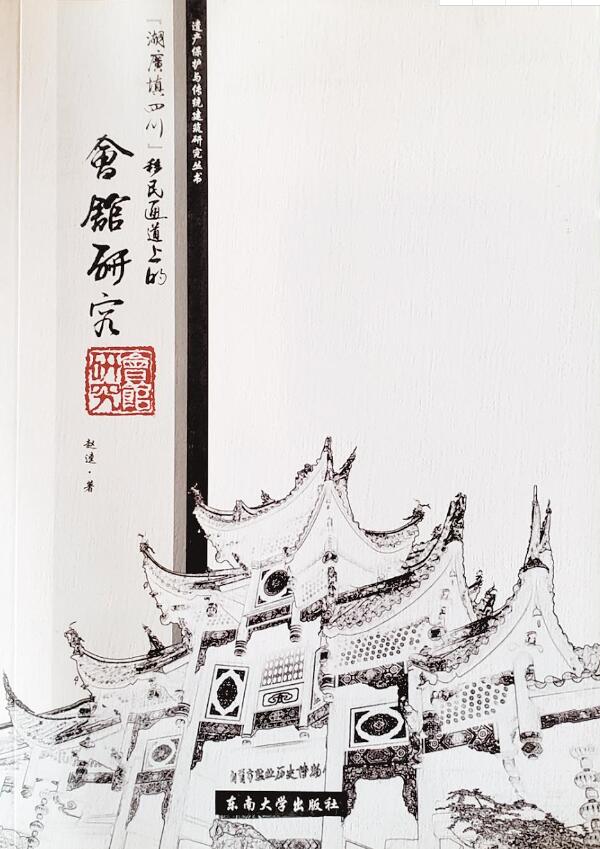 遗产保护与传统建筑研究丛书
『湖廣填四川』移民通道上的
會舘研究
會館研究
赵逵·著
自贡市盐业历史博物
东南大学出版社